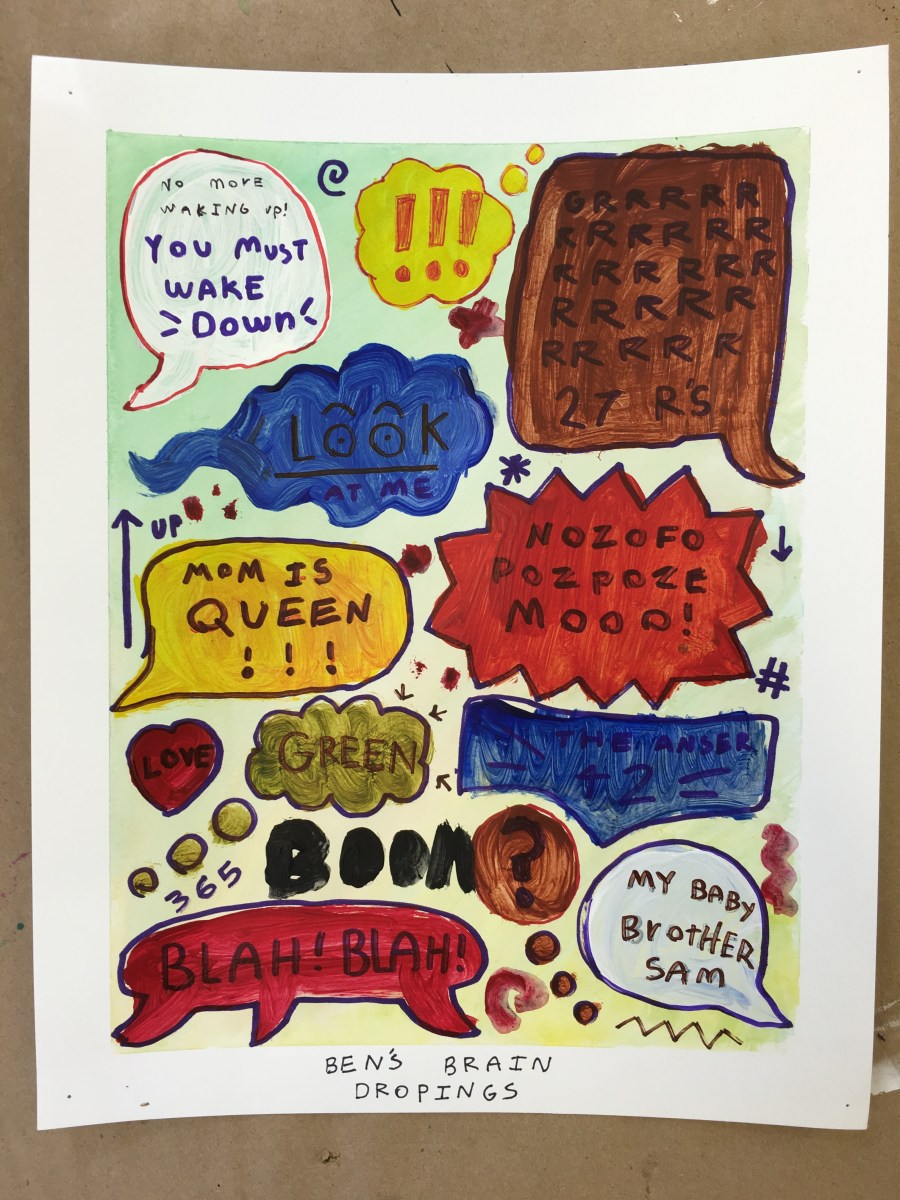 NO MORE
WAKING UP!
YOU MUST
WAKE
DOWN
!!!
GRRRRR
RRRRRR
RRRRRR
RRRRR
RRRRR
27 R'S
LOOK
AT ME
*
UP
MOM IS
QUEEN
!!!
NOZOFO
POZPOZE
MOOO!
#
LOVE
GREEN
THE ANSER
42
365
BOOM
?
BLAH! BLAH!
MY BABY
BROTHER
SAM
BEN'S BRAIN
DROPINGS